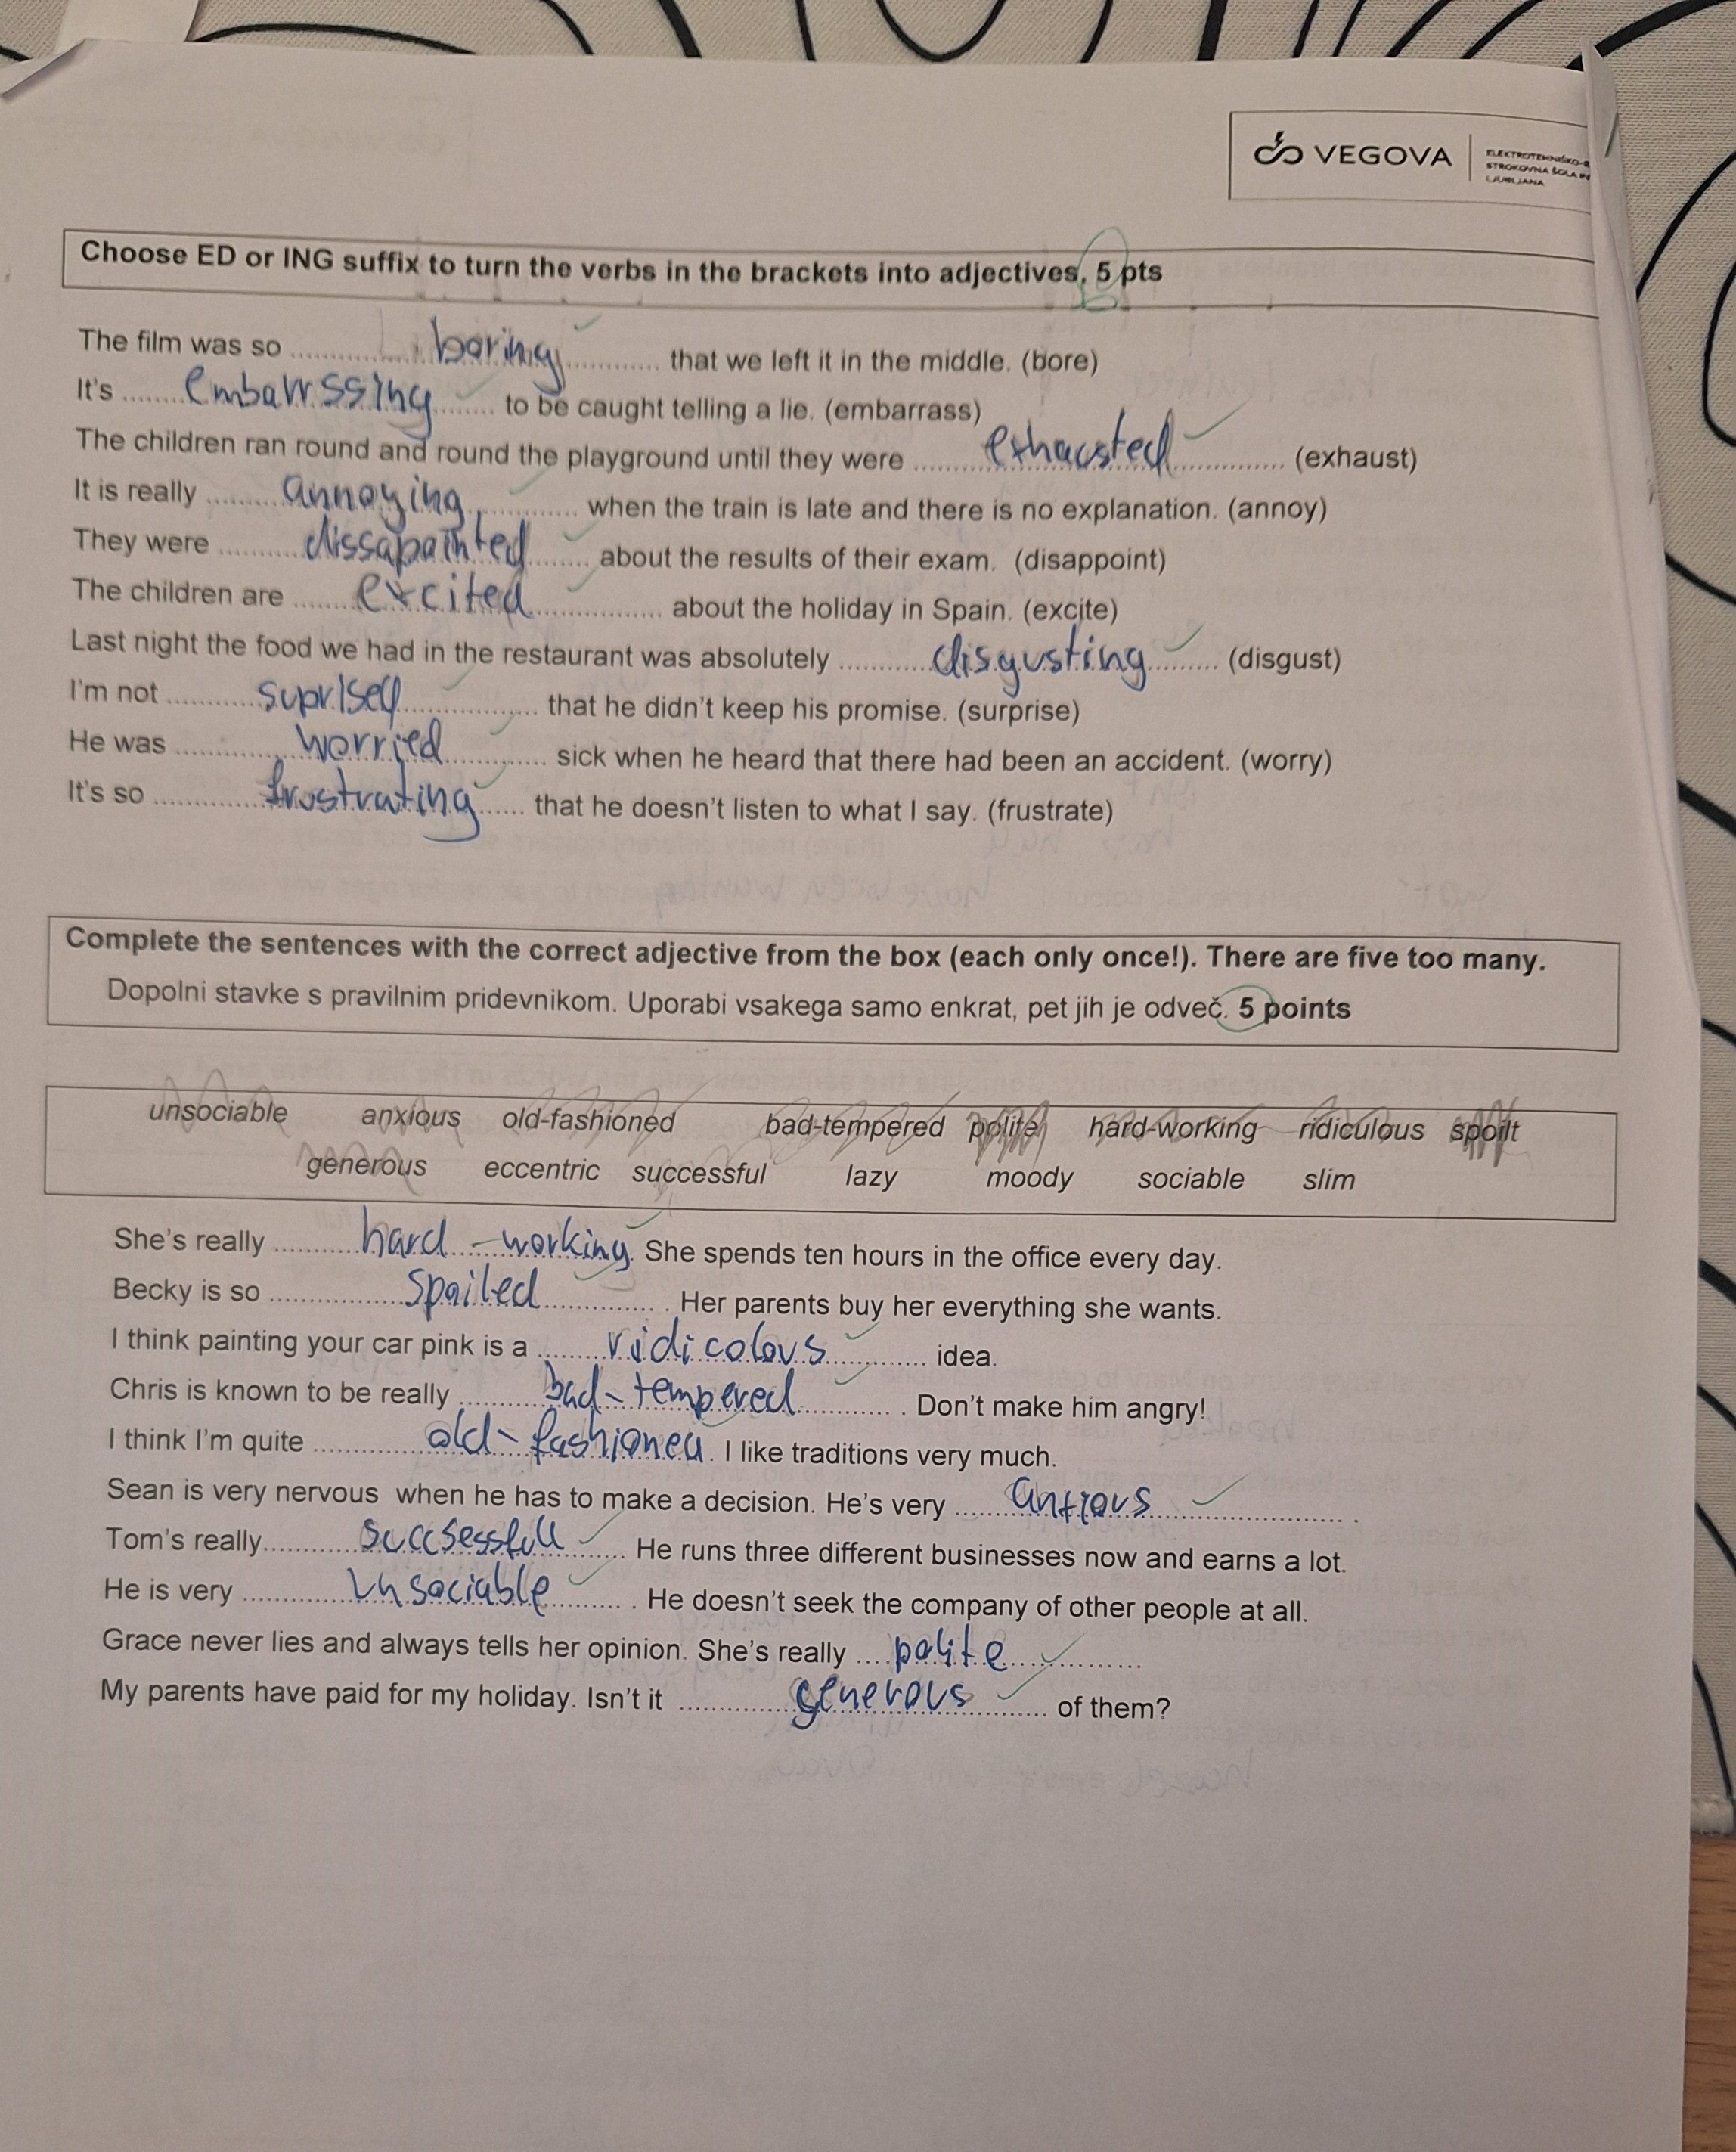 VEGOVA
ELEKTROTEHNIŠKO-
STROKOVNA ŠOLA IN
LJUBLJANA
Choose ED or ING suffix to turn the verbs in the brackets into adjectives. 5 pts
The film was so .......... boring .......... that we left it in the middle. (bore)
It's ........ embarrssing ........ to be caught telling a lie. (embarrass)
The children ran round and round the playground until they were .......... exhausted .......... (exhaust)
It is really .......... annoying .......... when the train is late and there is no explanation. (annoy)
They were .......... dissapointed .......... about the results of their exam. (disappoint)
The children are ........ excited .......... about the holiday in Spain. (excite)
Last night the food we had in the restaurant was absolutely .......... disgusting ........ (disgust)
I'm not .......... suprised .......... that he didn't keep his promise. (surprise)
He was .......... worried .......... sick when he heard that there had been an accident. (worry)
It's so .......... frustrating ...... that he doesn't listen to what I say. (frustrate)
Complete the sentences with the correct adjective from the box (each only once!). There are five too many.
Dopolni stavke s pravilnim pridevnikom. Uporabi vsakega samo enkrat, pet jih je odveč. 5 points
unsociable anxious old-fashioned bad-tempered polite hard-working ridiculous spoilt
generous eccentric successful lazy moody sociable slim
She's really .......... hard-working. She spends ten hours in the office every day.
Becky is so .......... spoiled .......... . Her parents buy her everything she wants.
I think painting your car pink is a ........ ridicolous .......... idea.
Chris is known to be really .......... bad-tempered .......... . Don't make him angry!
I think I'm quite .......... old-fashioned. I like traditions very much.
Sean is very nervous when he has to make a decision. He's very ...... anxious .......... .
Tom's really .......... succsessfull .......... He runs three different businesses now and earns a lot.
He is very .......... unsociable .......... . He doesn't seek the company of other people at all.
Grace never lies and always tells her opinion. She's really .... polite ..........
My parents have paid for my holiday. Isn't it .......... generous .......... of them?